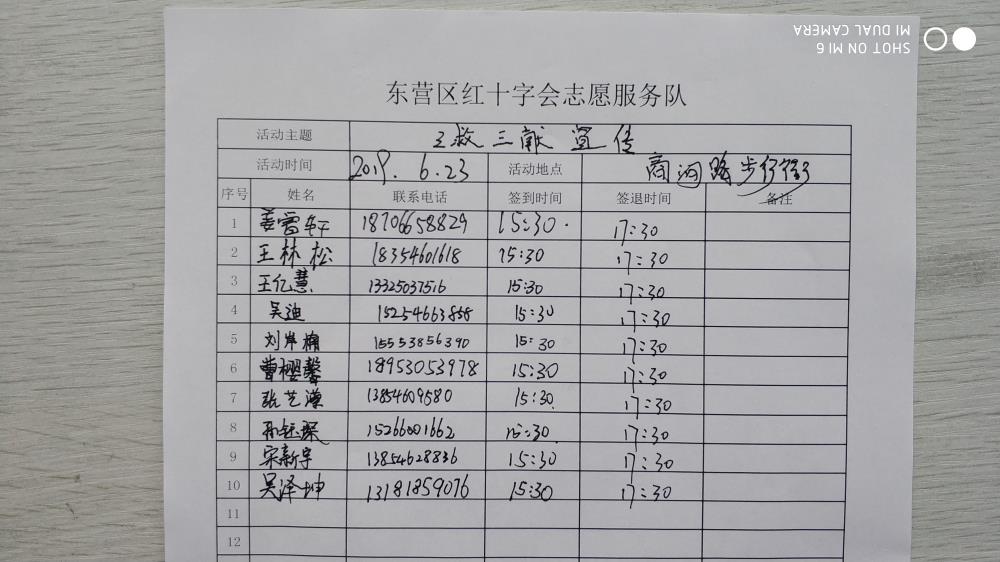 SHOT ON MI 6
MI DUAL CAMERA
东营区红十字会志愿服务队
活动主题 三救三献宣传
活动时间 2019.6.23 活动地点 商河路步行街
序号 姓名 联系电话 签到时间 签退时间 备注
1 姜雪轩 18706658829 15:30 17:30
2 王林松 18354601618 15:30 17:30
3 王亿慧 13325037516 15:30 17:30
4 吴迪 15254663858 15:30 17:30
5 刘岸楠 15553856390 15:30 17:30
6 曹樱馨 18953053978 15:30 17:30
7 张艺潇 13854609580 15:30 17:30
8 孙钰琛 15266001662 15:30 17:30
9 宋新宇 13854628836 15:30 17:30
10 吴泽坤 13181859076 15:30 17:30
11
12